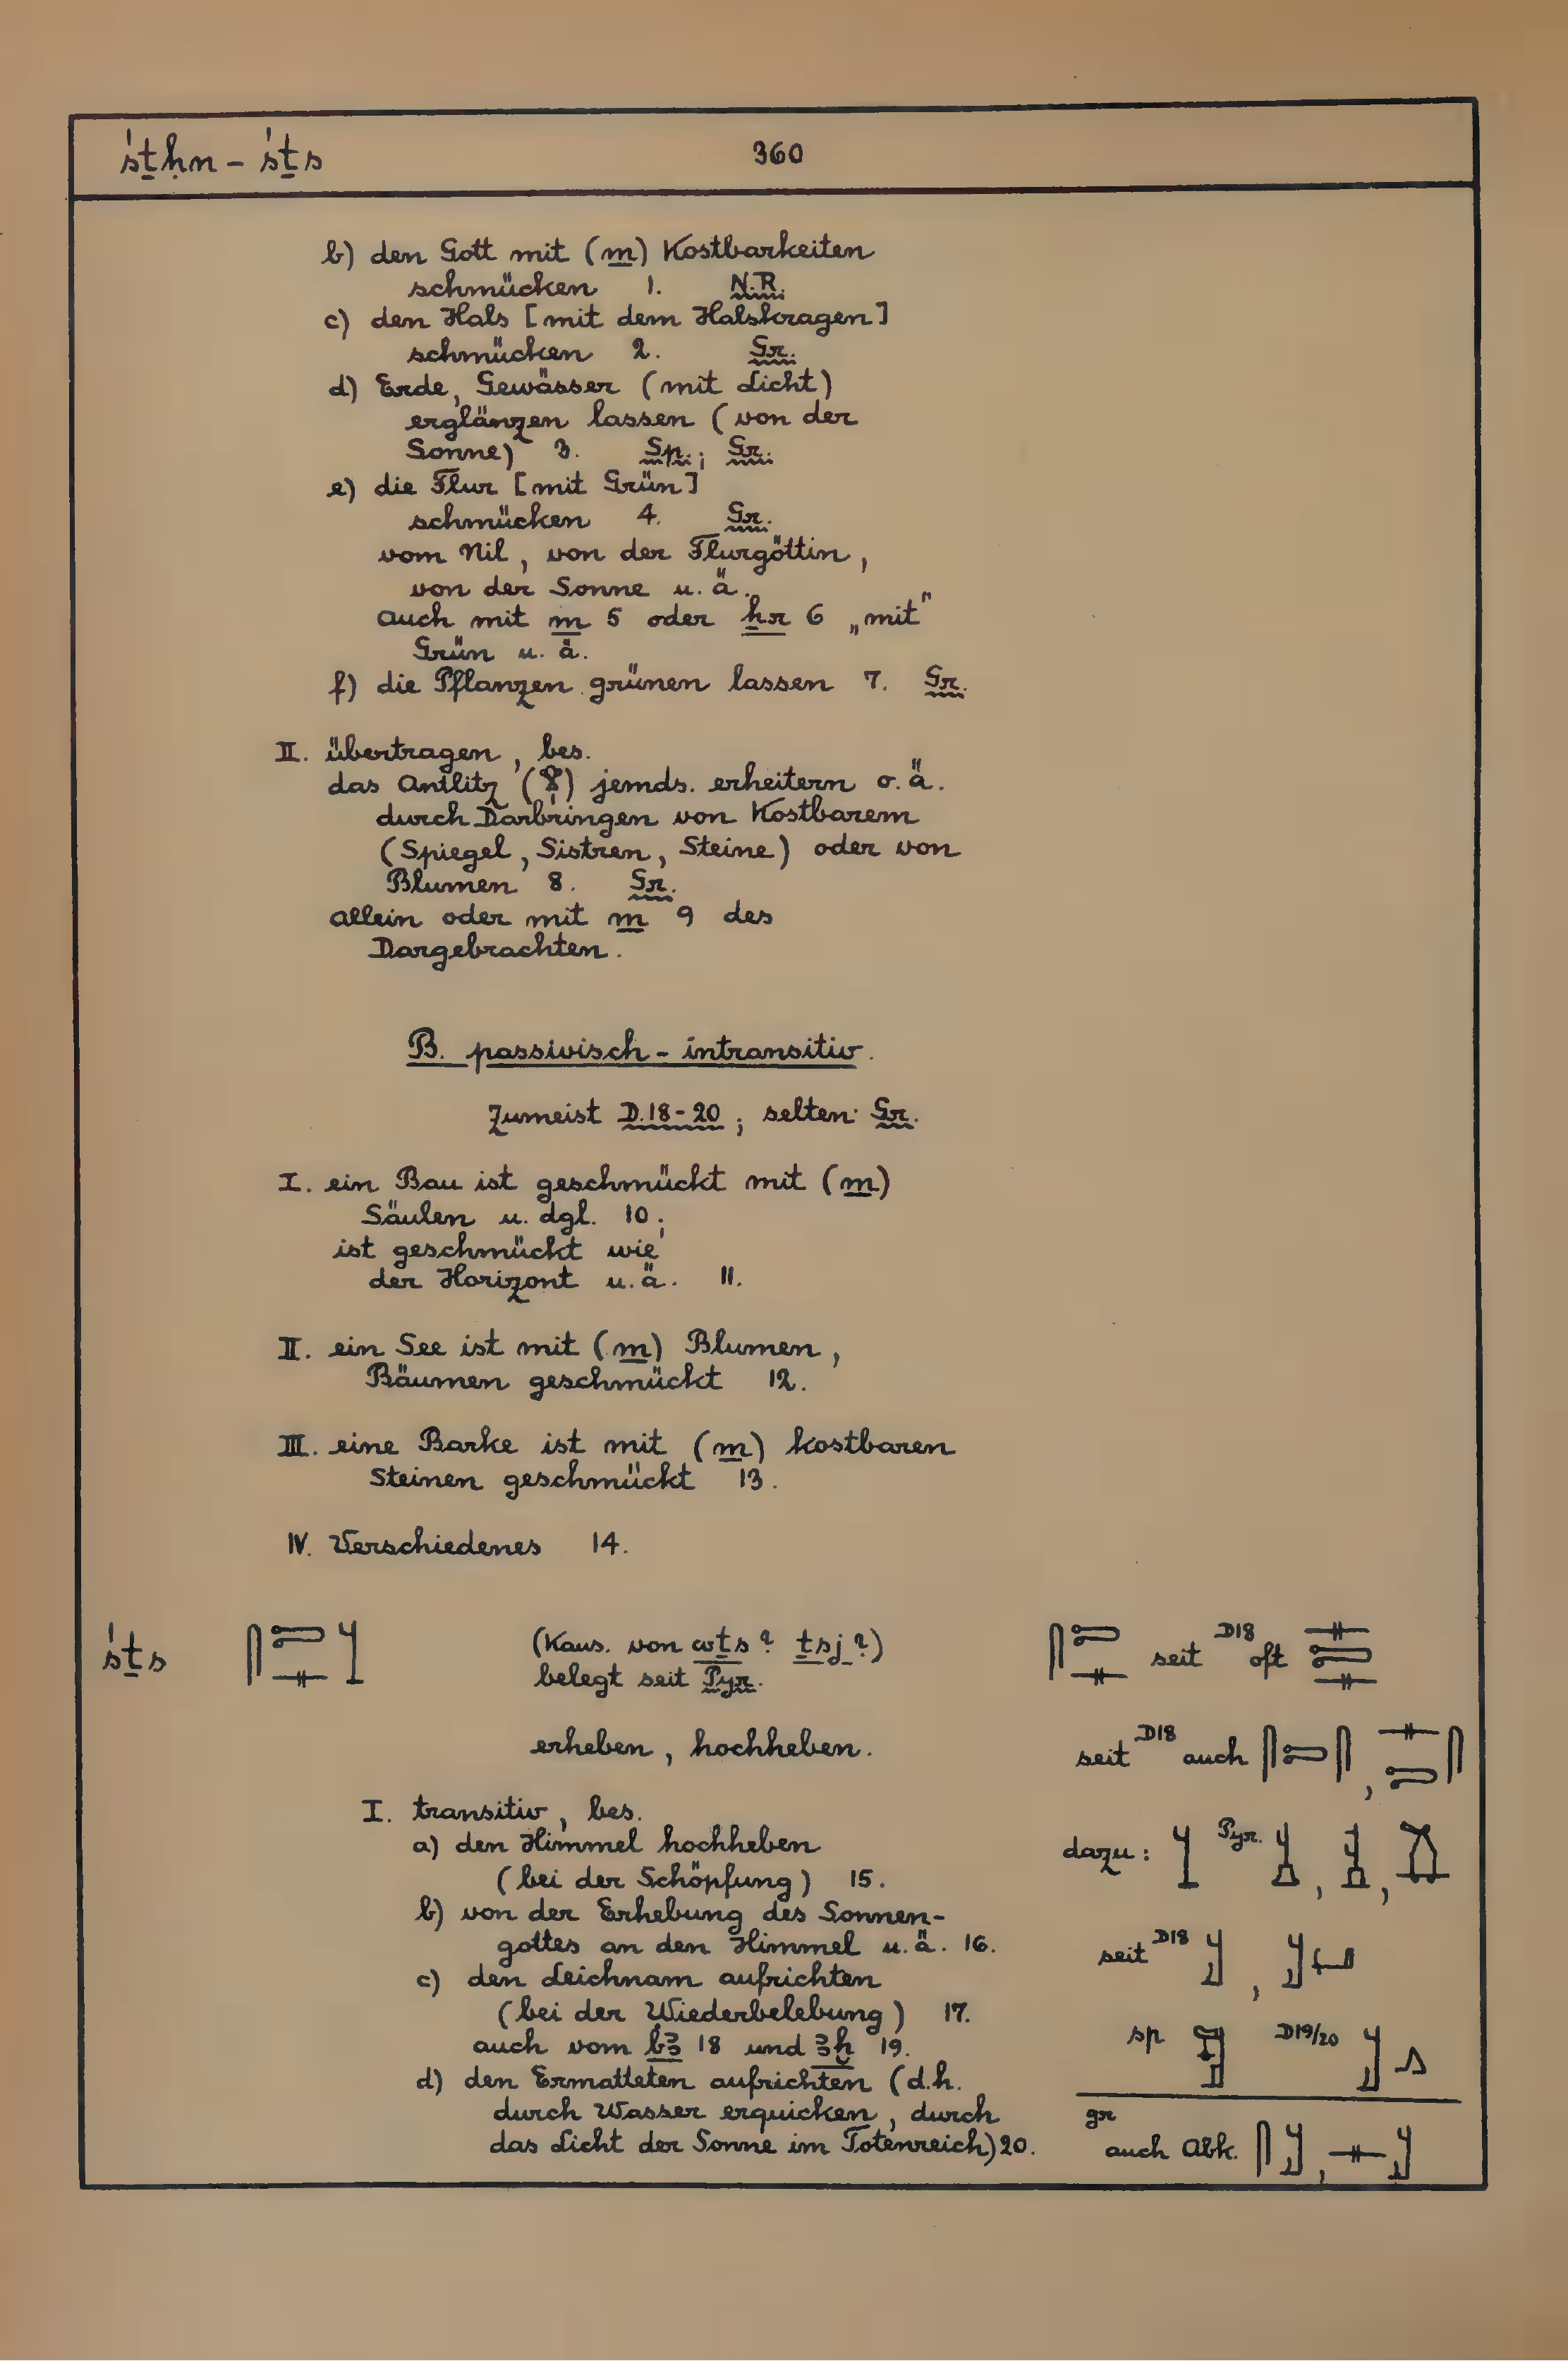 śṯḥn – śṯs
360
b) den Gott mit (m) Kostbarkeiten
schmücken 1. N.R.
c) den Hals [mit dem Halskragen]
schmücken 2. Gr.
d) Erde, Gewässer (mit Licht)
erglänzen lassen (von der
Sonne) 3. Sp.; Gr.
e) die Flur [mit Grün]
schmücken 4. Gr.
vom Nil, von der Flurgöttin,
von der Sonne u. ä.
auch mit m 5 oder ẖr 6 „mit“
Grün u. ä.
f) die Pflanzen grünen lassen 7. Gr.
II. übertragen, bes.
das Antlitz (𓁷) jemds. erheitern o. ä.
durch Darbringen von Kostbarem
(Spiegel, Sistren, Steine) oder von
Blumen 8. Gr.
allein oder mit m 9 des
Dargebrachten.
B. passivisch – intransitiv.
Zumeist D.18-20; selten Gr.
I. ein Bau ist geschmückt mit (m)
Säulen u. dgl. 10;
ist geschmückt wie
der Horizont u. ä. 11.
II. ein See ist mit (m) Blumen,
Bäumen geschmückt 12.
III. eine Barke ist mit (m) kostbaren
Steinen geschmückt 13.
IV. Verschiedenes 14.
śṯs 𓋴𓍿𓊃 (Kaus. von wṯs? ṯsj?)
belegt seit Pyr.
erheben, hochheben.
I. transitiv, bes.
a) den Himmel hochheben
(bei der Schöpfung) 15.
b) von der Erhebung des Sonnen-
gottes an den Himmel u. ä. 16.
c) den Leichnam aufrichten
(bei der Wiederbelebung) 17.
auch vom bꜣ 18 und ꜣḫ 19.
d) den Ermatteten aufrichten (d.h.
durch Wasser erquicken, durch
das Licht der Sonne im Totenreich) 20.
𓋴𓍿𓊃 seit D18 oft 𓊃𓍿𓊃
seit D18 auch 𓋴𓍿𓋴, 𓊃𓍿𓋴
dazu: Pyr.
seit D18
sp D19/20
gr
auch Abk.